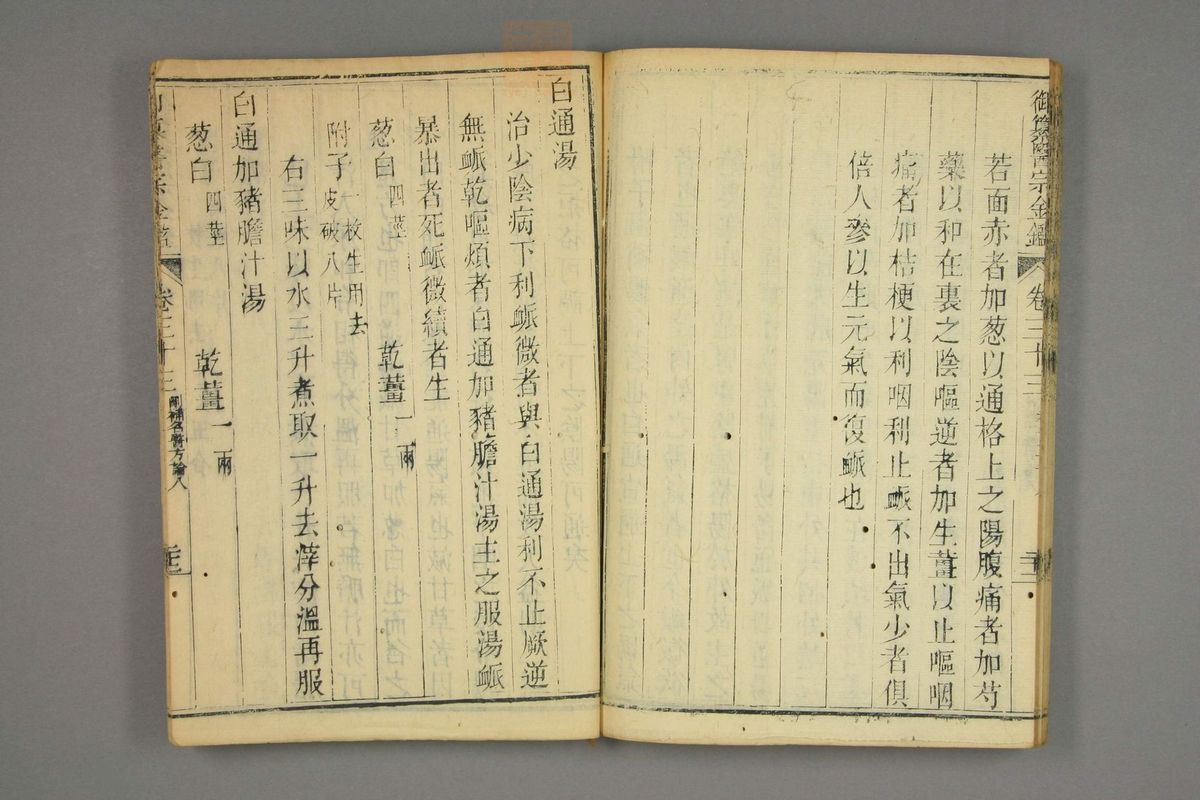 御纂醫宗金鑑 卷三十三
若面赤者加葱以通格上之陽腹痛者加芍
藥以和在裏之陰嘔逆者加生薑以止嘔咽
痛者加桔梗以利咽利止衇不出氣少者俱
倍人參以生元氣而復衇也
白通湯
治少陰病下利衇微者與白通湯利不止厥逆
無衇乾嘔煩者白通加豬膽汁湯主之服湯衇
暴出者死衇微續者生
葱白 四莖 乾薑 一兩
附子 一枚生用去
皮破八片
右三味以水三升煮取一升去滓分溫再服
白通加豬膽汁湯
葱白 四莖 乾薑 一兩
卷三十三 刪補名醫方論八